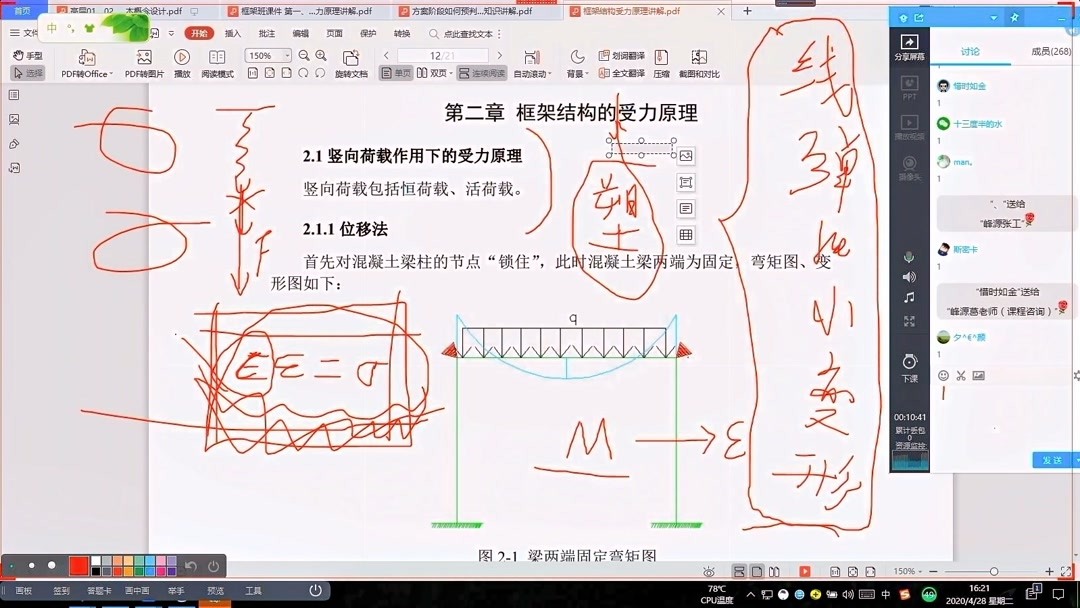 首页
框架班课件 第一、...力原理讲解.pdf
方案阶段如何预判...知识讲解.pdf
框架结构受力原理讲解.pdf
中
开始
插入
批注
编辑
页面
保护
转换
点此查找文本
手型
选择
PDF转Office
PDF转图片
播放
阅读模式
150%
旋转文档
12/21
单页
双页
连续阅读
自动滚动
背景
划词翻译
全文翻译
压缩
截图和对比
第二章 框架结构的受力原理
2.1 竖向荷载作用下的受力原理
竖向荷载包括恒荷载、活荷载。
2.1.1 位移法
首先对混凝土梁柱的节点“锁住”，此时混凝土梁两端为固定，弯矩图、变
形图如下：
q
图 2-1 梁两端固定弯矩图
F
Eε=σ
M → ε
塑
线
弹
性
小
变
形
分享屏幕
PPT
播放视频
摄像头
下课
00:10:41
累计丢包
0
资源监控
讨论
成员(268)
1
惜时如金
1
十三度半的水
1
man。
1
“、”送给
“峰源张工”
斯密卡
1
“惜时如金”送给
“峰源葛老师（课程咨询）”
1
发送
画板
签到
答题卡
画中画
举手
预览
工具
150%
78℃
CPU温度
中
49
16:21
2020/4/28 星期二
1